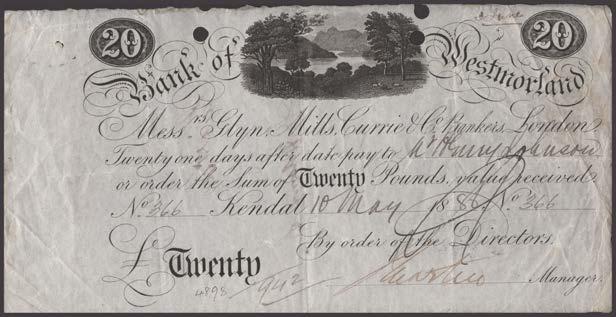 20 20
Bank of Westmorland
Mess.rs Glyn, Mills, Currie & Co. Bankers, London
Twenty one days after date pay to Mr Henry Johnson
or order the Sum of Twenty Pounds, value received
No. 366 Kendal 10 May 188 No. 366
By order of the Directors.
£ Twenty
4898 Manager.